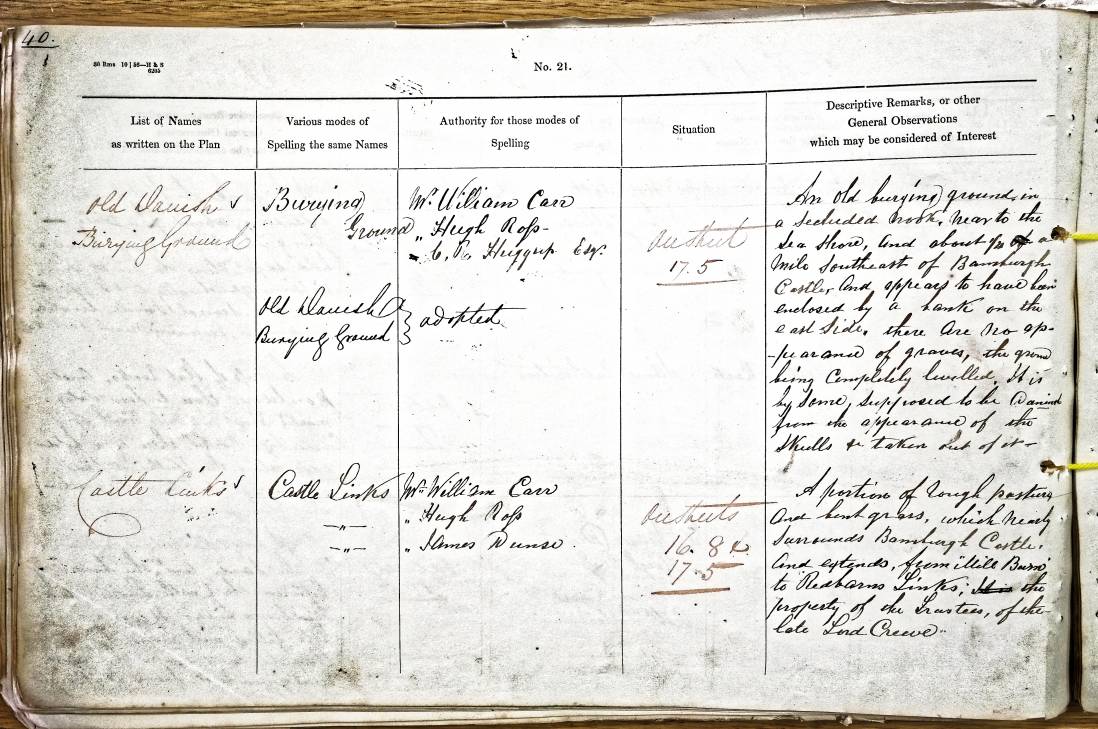 40.
No. 21.
List of Names
as written on the Plan
Various modes of
Spelling the same Names
Authority for those modes of
Spelling
Situation
Descriptive Remarks, or other
General Observations
which may be considered of Interest
Old Danish
Burying Ground
Burying
Ground
Old Danish
Burying Ground
Mr. William Carr
„ Hugh Ross
„ C. R. Huggup Esqr.
adopted
On Sheet
17. 5
An old burying ground, in
a secluded nook, near to the
Sea Shore, and about a
Mile Southeast of Bamburgh
Castle, and appears to have been
enclosed by a bank on the
east side, there are no ap-
-pearance of graves, the
being completely levelled. It is
by some, supposed to be
from the appearance of the
Skulls &c taken out of it-
Castle Links
Castle Links
—„—
—„—
Mr. William Carr
„ Hugh Ross
„ James Dunse.
On Sheets
16. 8 &
17. 5
A portion of rough pasture
and bent grass, which nearly
surrounds Bamburgh Castle.
and extends, from "Mill Burn"
to "Redbarns Links; It is the
property of the Trustees, of the
late Lord Crewe.